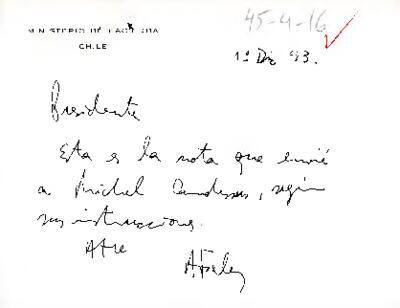 45-4-16
MINISTERIO DE HACIENDA
CHILE
1º Dic 93.
Presidente
Esta es la nota que envié
a Michel Camdessus, según
sus instrucciones.
Atte
A. Foxley